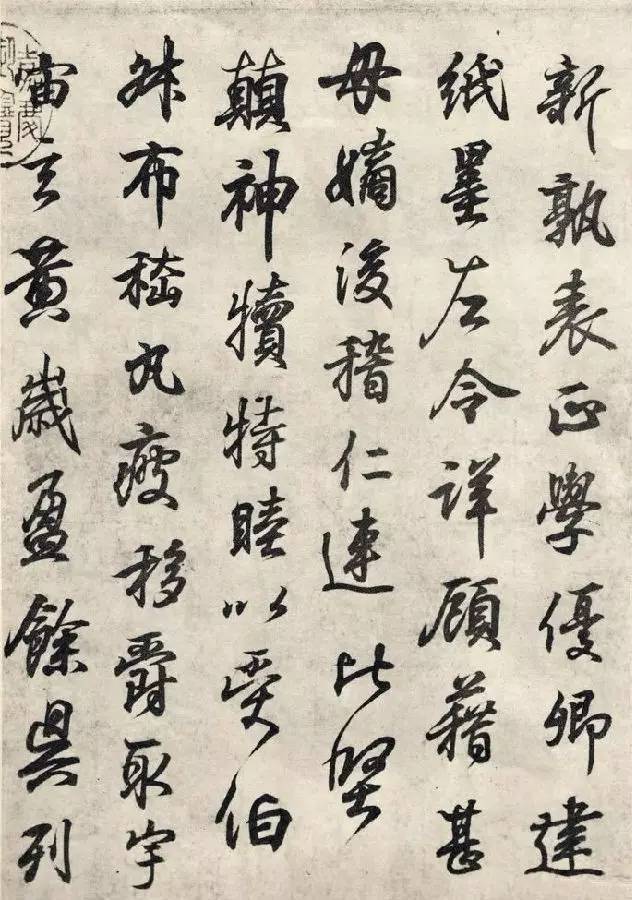 新孰表正學優卿建
紙墨左令詳顧藉甚
毋嫡後稽仁連比堅
顛神犢特睦以受伯
布嵇丸瘦移爵取宇
宙玄黃歲盈餘具列